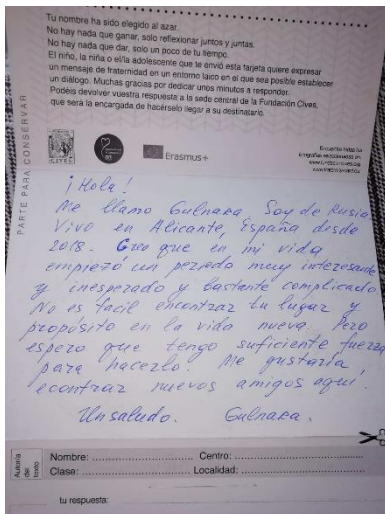 Tu nombre ha sido elegido al azar.
No hay nada que ganar, solo reflexionar juntos y juntas.
No hay nada que dar, solo un poco de tu tiempo.
El niño, la niña o el/la adolescente que te envió esta tarjeta quiere expresar
un mensaje de fraternidad en un entorno laico en el que sea posible establecer
un diálogo. Muchas gracias por dedicar unos minutos a responder.
Podéis devolver vuestra respuesta a la sede central de la Fundación Cives,
que será la encargada de hacérselo llegar a su destinatario.
PARTE PARA CONSERVAR
CIVES
Erasmus+
¡Hola!
Me llamo Gulnara Soy de Rusia
Vivo en Alicante, España desde
2018. Creo que en mi vida
empiezó un periodo muy interesante
y inesperado y bastante complicado
No es facil encontrar tu lugar y
propósito en la vida nueva. Pero
espero que tengo suficiente fuerza
para hacerlo. Me gustaría
econtrar nuevos amigos aquí.
Un saludo. Gulnara.
Autoría del texto
Nombre: Centro:
Clase: Localidad:
tu respuesta: